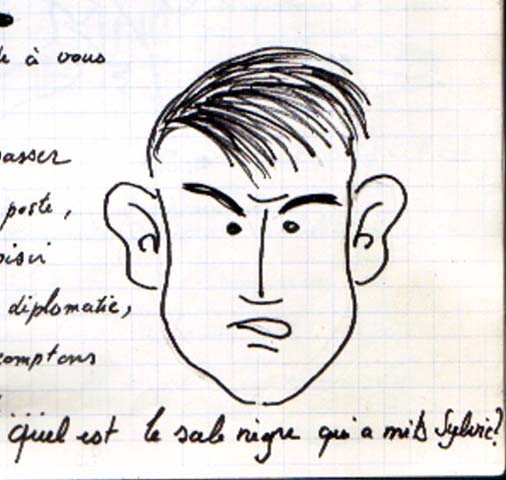 à vous
asser
poste,
oisir
diplomatie,
comptons
quel est le sale nègre qui a mis Sylvie?